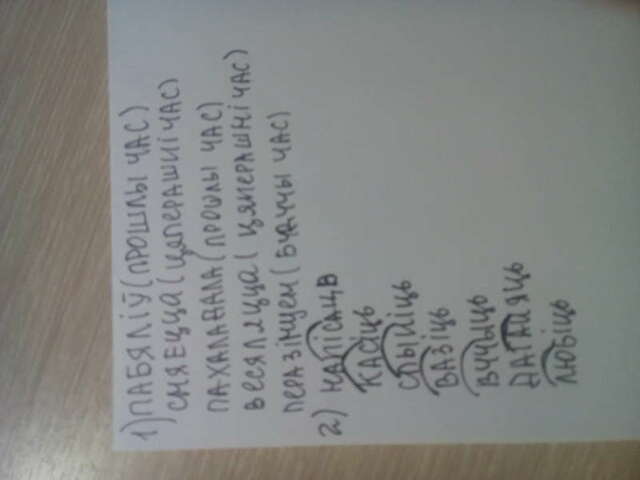 1) ПАБЯЛІЎ (ПРОШЛЫ ЧАС)
СМЯЕЦЦА (ЦЯПЕРАШНІ ЧАС)
ПАХАЛАДАЛА (ПРОШЛЫ ЧАС)
ВЕСЯЛЯЦЦА (ЦЯПЕРАШНІ ЧАС)
ПЕРАЗІМУЕМ (БУДУЧЫ ЧАС)
2) НАПІСАЦЬ
КАСІЦЬ
СПЫНІЦЬ
ВАЗІЦЬ
ВУЧЫЦЬ
ЛЮБІЦЬ